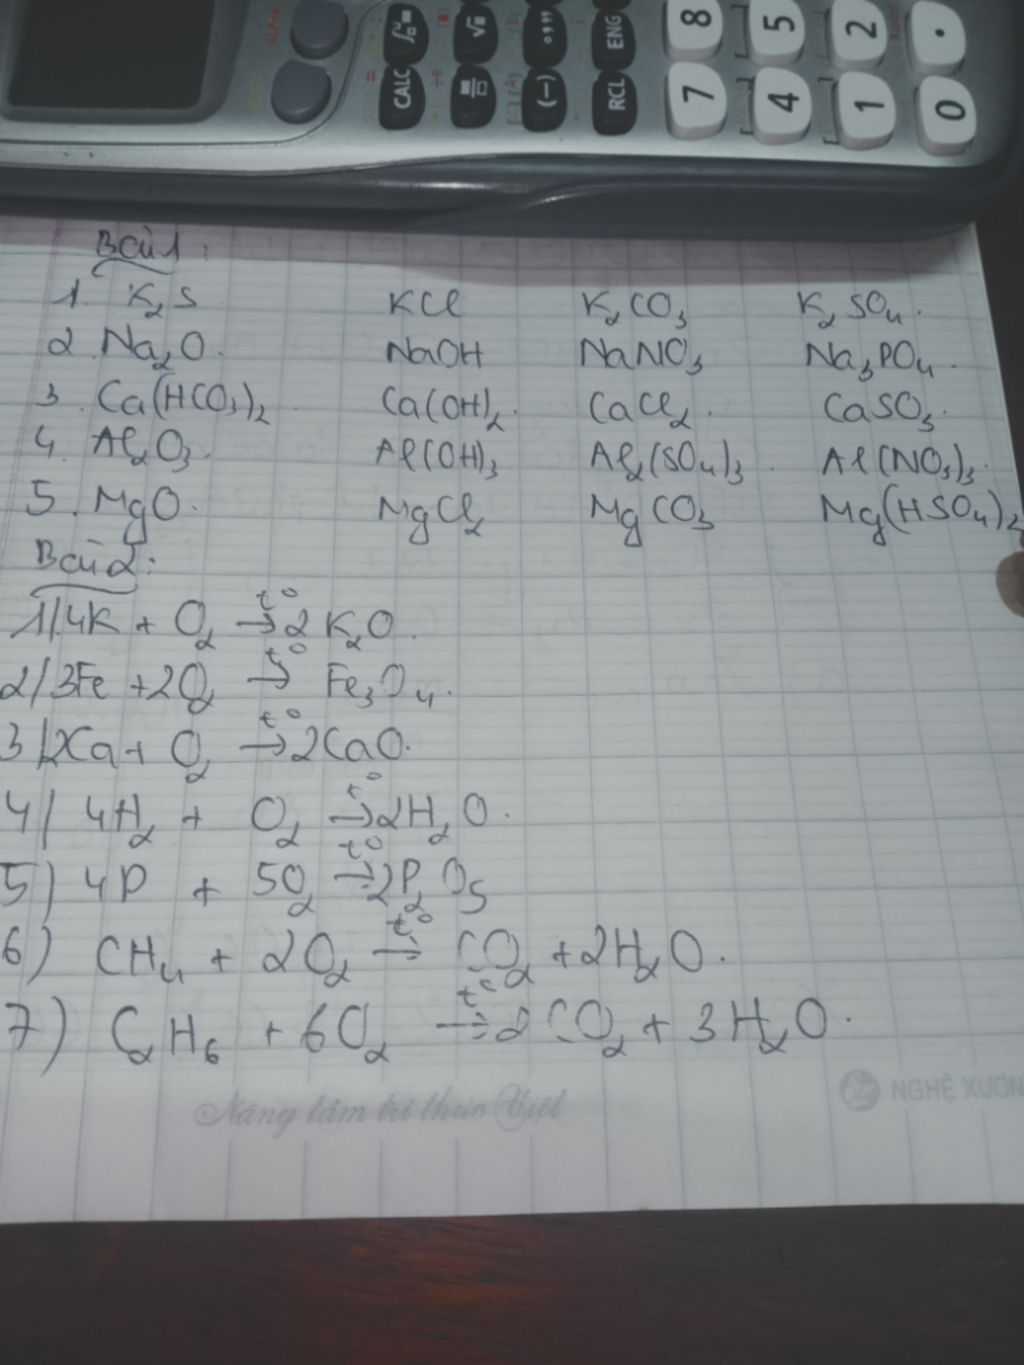 ALPHA
CALC √ (−) RCL ENG
8 5 2 .
7 4 1 0
Bài 1:
1. K₂S KCl K₂CO₃ K₂SO₄.
2. Na₂O. NaOH NaNO₃ Na₃PO₄.
3. Ca(HCO₃)₂. Ca(OH)₂. CaCl₂. CaSO₃.
4. Al₂O₃. Al(OH)₃ Al₂(SO₄)₃. Al(NO₃)₃.
5. MgO. MgCl₂ MgCO₃ Mg(HSO₄)₂
Bài 2:
1/ 4K + O₂ →t° 2K₂O.
2/ 3Fe + 2O₂ →t° Fe₃O₄.
3/ 2Ca + O₂ →t° 2CaO.
4/ 4H₂ + O₂ →t° 2H₂O.
5) 4P + 5O₂ →t° 2P₂O₅
6) CH₄ + 2O₂ →t° CO₂ + 2H₂O.
7) C₂H₆ + 6O₂ →t° 2CO₂ + 3H₂O.
Nâng tầm tri thức Việt NGHỆ XƯƠN